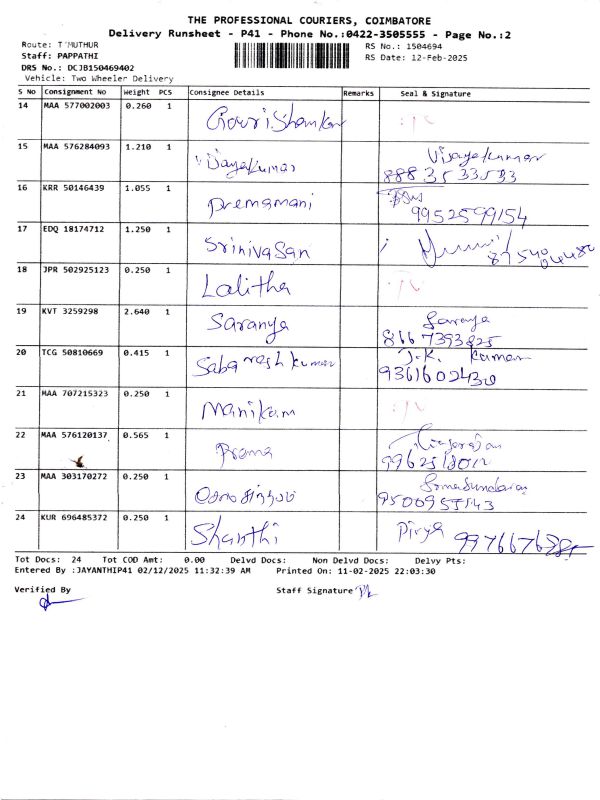 THE PROFESSIONAL COURIERS, COIMBATORE
Delivery Runsheet - P41 - Phone No.:0422-3505555 - Page No.:2
Route: T'MUTHUR
RS No.: 1504694
Staff: PAPPATHI
RS Date: 12-Feb-2025
DRS No.: DCJB150469402
Vehicle: Two Wheeler Delivery
S No Consignment No Weight PCS Consignee Details Remarks Seal & Signature
14 MAA 577002003 0.260 1 GowriShankar
15 MAA 576284093 1.210 1 Vijayakumar Vijayakumar
8883533533
16 KRR 50146439 1.055 1 Premamani
9952599154
17 EDQ 18174712 1.250 1 Srinivasan
18 JPR 502925123 0.250 1 Lalitha
19 KVT 3259298 2.640 1 Saranya Saranya
8667393825
20 TCG 50810669 0.415 1 Sabareesh kumar J.K. Kumar
9361602430
21 MAA 707215323 0.250 1 Manikam
22 MAA 576120137 0.565 1 Prema
23 MAA 303170272 0.250 1 Somasundaram
9500955543
24 KUR 696485372 0.250 1 Shanthi Pirya
Tot Docs: 24 Tot COD Amt: 0.00 Delvd Docs: Non Delvd Docs: Delvy Pts:
Entered By :JAYANTHIP41 02/12/2025 11:32:39 AM Printed On: 11-02-2025 22:03:30
Verified By
Staff Signature